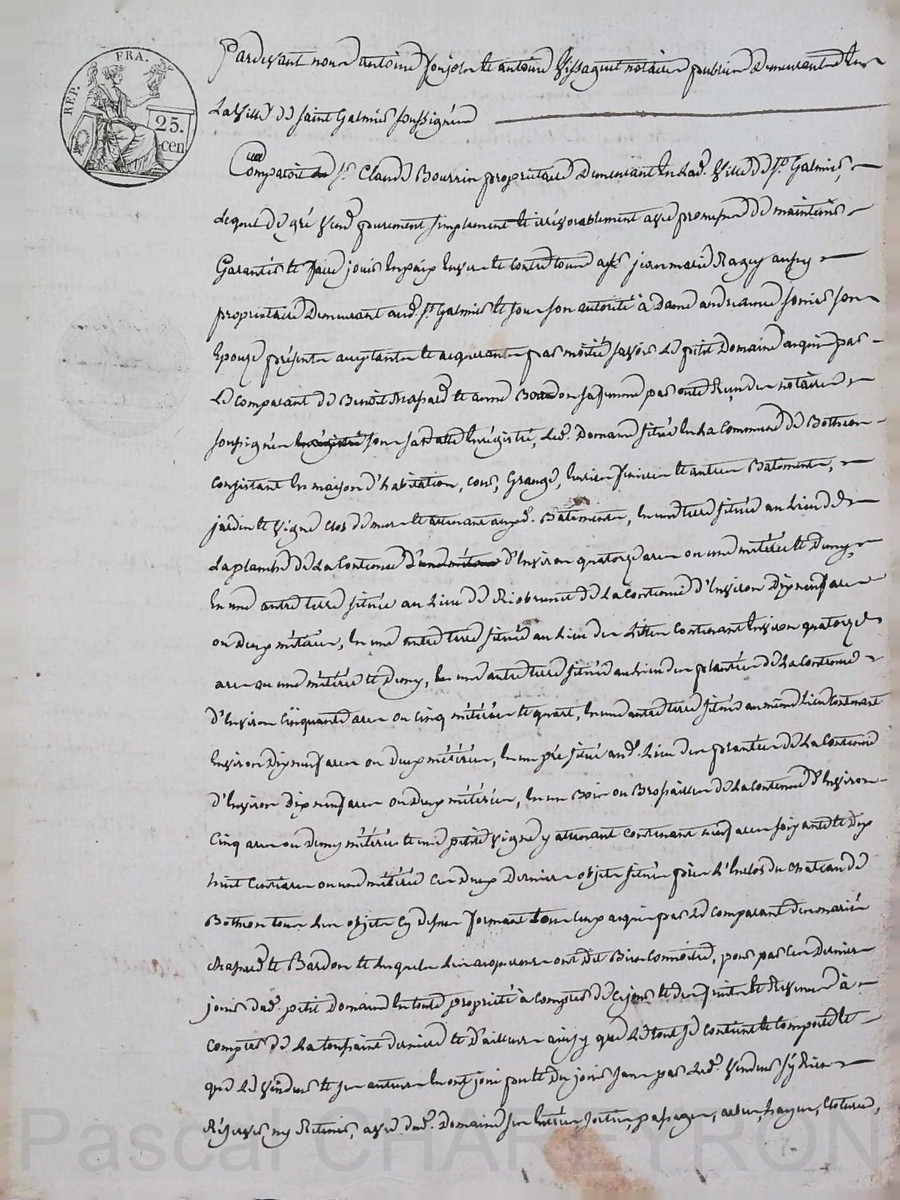 REP. FRA.
25. cen
Pardevant nous antoine et antoine notaires publics Demeurant En
La Ville de saint Galmier soussignés
Comparoit sr. Claude Bourrin propriétaire Demeurant En lad. Ville de st. Galmier,
lequel de gré Vend purement simplement et irrévocablement avec promesse de maintenir
Garantir et faire jouir En paix Envers et Contre tous a sr. jean marie Raguy aussy
propriétaire Demeurant aud. st. Galmier et sous son autorité à Dame andréanne son
Epouze présente acceptante et acquerante par moitié savoir Le petit Domaine acquis par
Le Comparant de Benoit et anne sa femme par acte Reçu des notaires
soussignés sous sa datte Enregistré, Led. Domaine situé En La Commune de Bothéon
Consistant En maison d'habitation, cour, Grange, Ecurie et autres Batiments,
jardin et Vigne clos de murs et attenant auxd. Bâtiments, En une terre située au Lieu de
La planche de La Contenue d'Environ quatorze ares ou une métérée et Demy,
En une autre terre située au Lieu de de La Contenue d'Environ Dix neuf ares
ou Deux métérées, En une autre terre située au Lieu des Contenant Environ quatorze
ares ou une métérée et Demy, En une autre terre située au Lieu des plantées de La Contenue
d'Environ Cinquante ares ou Cinq métérées et quart, En une autre terre située au même Lieu Contenant
Environ Dix neuf ares ou Deux métérées, En un pré situé aud. Lieu des plantées de La Contenue
d'Environ Dix neuf ares ou Deux métérées, En un Bois ou Brossailles de La Contenue d'Environ
Cinq ares ou Demy métérée et une petite Vigne y attenant Contenant neuf ares soixante et Dix
huit Centiares ou une métérée Ces Deux Derniers objets situés près L'Enclos du Chateau de
Bothéon tous Les objets Cy dessus formant Ceux acquis par Le Comparant des mariés
et Bardon et Lesquels Les acquereurs ont dit Bien Connoitre, pour par Ces Derniers
jouir dud. petit Domaine En toute propriété à Compter de Ce jour et des fruits et Revenus à
Compter de La toussaint derniere et d'ailleurs ainsy que Le tout se Contient et Comporte et
que Le Vendeur et ses auteurs En ont joui pu et Du jouir sans par Led. Vendeur s'y Rien
Réserver ny Retenir, avec dud. Domaine ses Entrées, sorties, passages, arbres, hayes, Clotures,
Pascal CHAREYRON